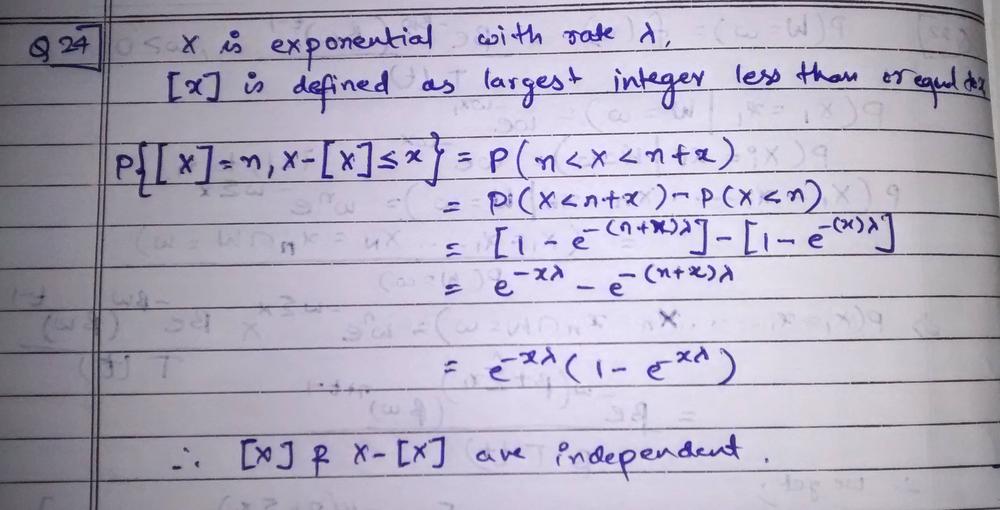 Q 24
X is exponential with rate λ,
[x] is defined as largest integer less than or equal to x
P{[X]=n, X-[X]≤x} = P(n<X<n+x)
= P(X<n+x) - P(X<n)
= [1 - e^-(n+x)λ] - [1 - e^-(x)λ]
= e^-xλ - e^-(n+x)λ
= e^-xλ (1 - e^xλ)
∴ [X] & X-[X] are independent.